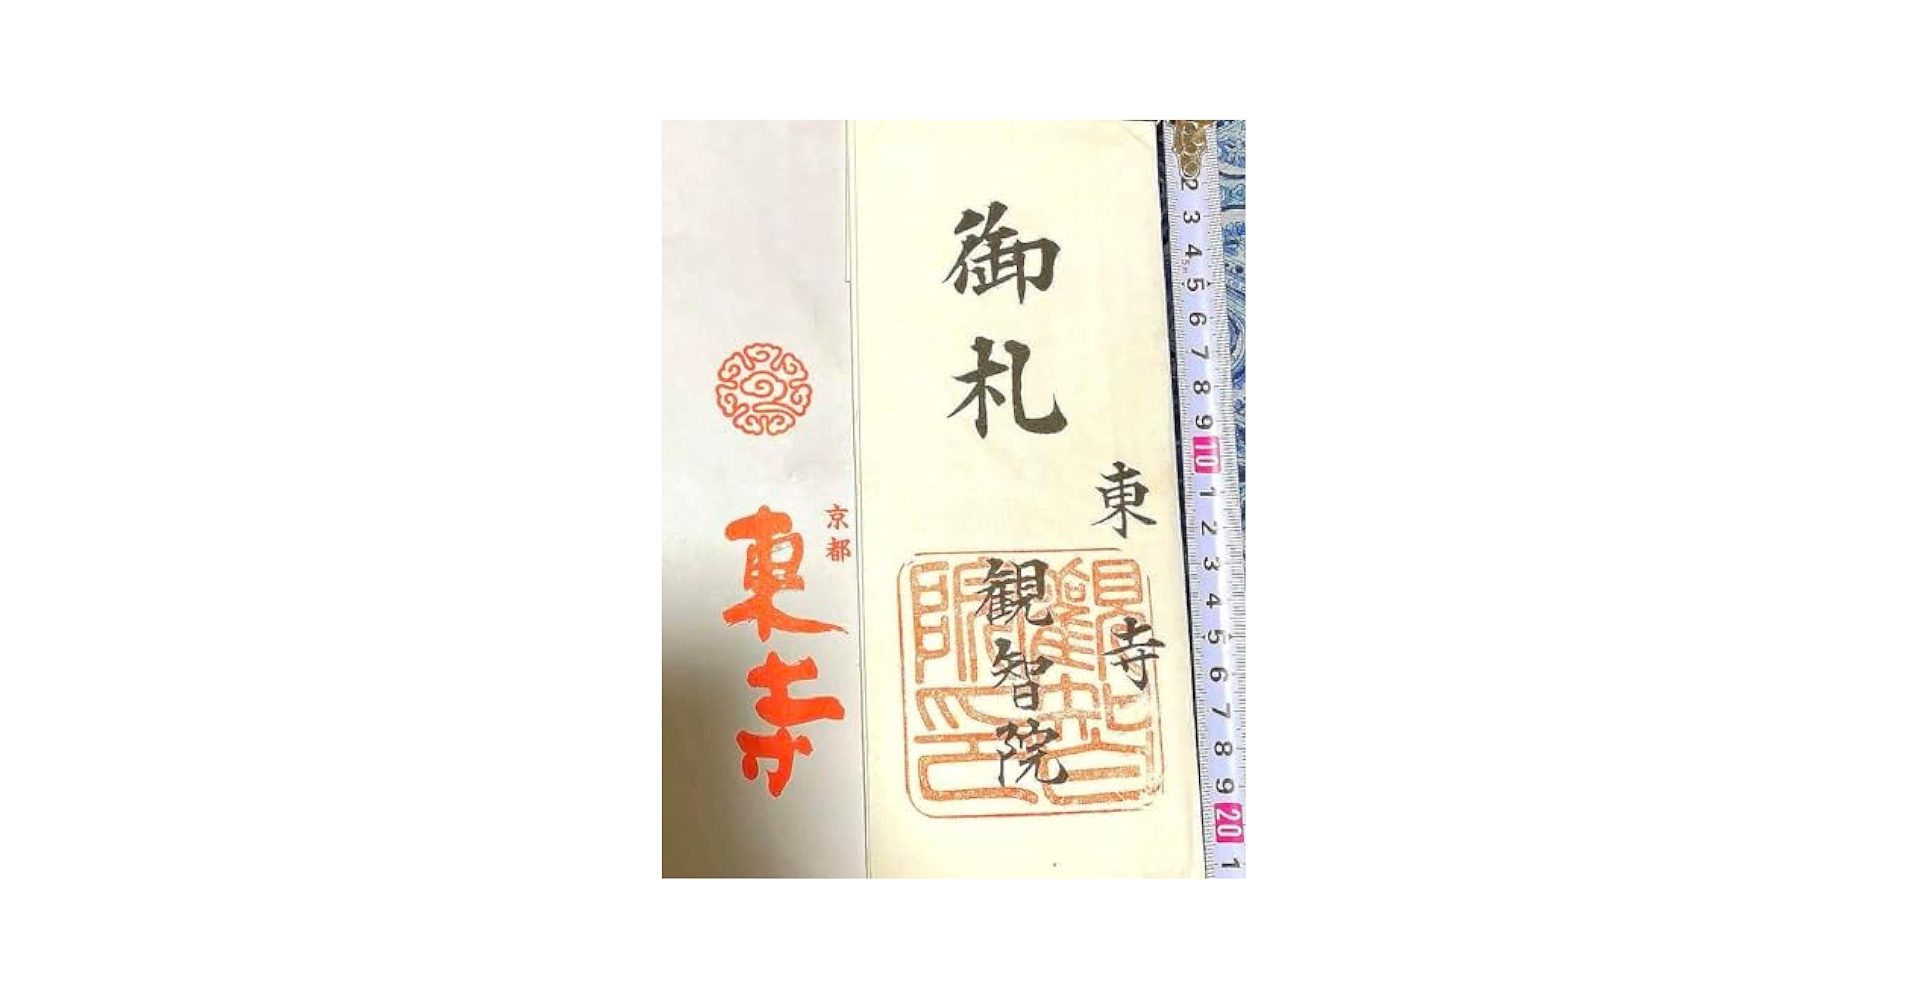 御札
東寺
観智院
觀智院印
京都
東寺
2
3
4
5
6
7
8
9
10
1
2
3
4
5
6
7
8
9
20
1